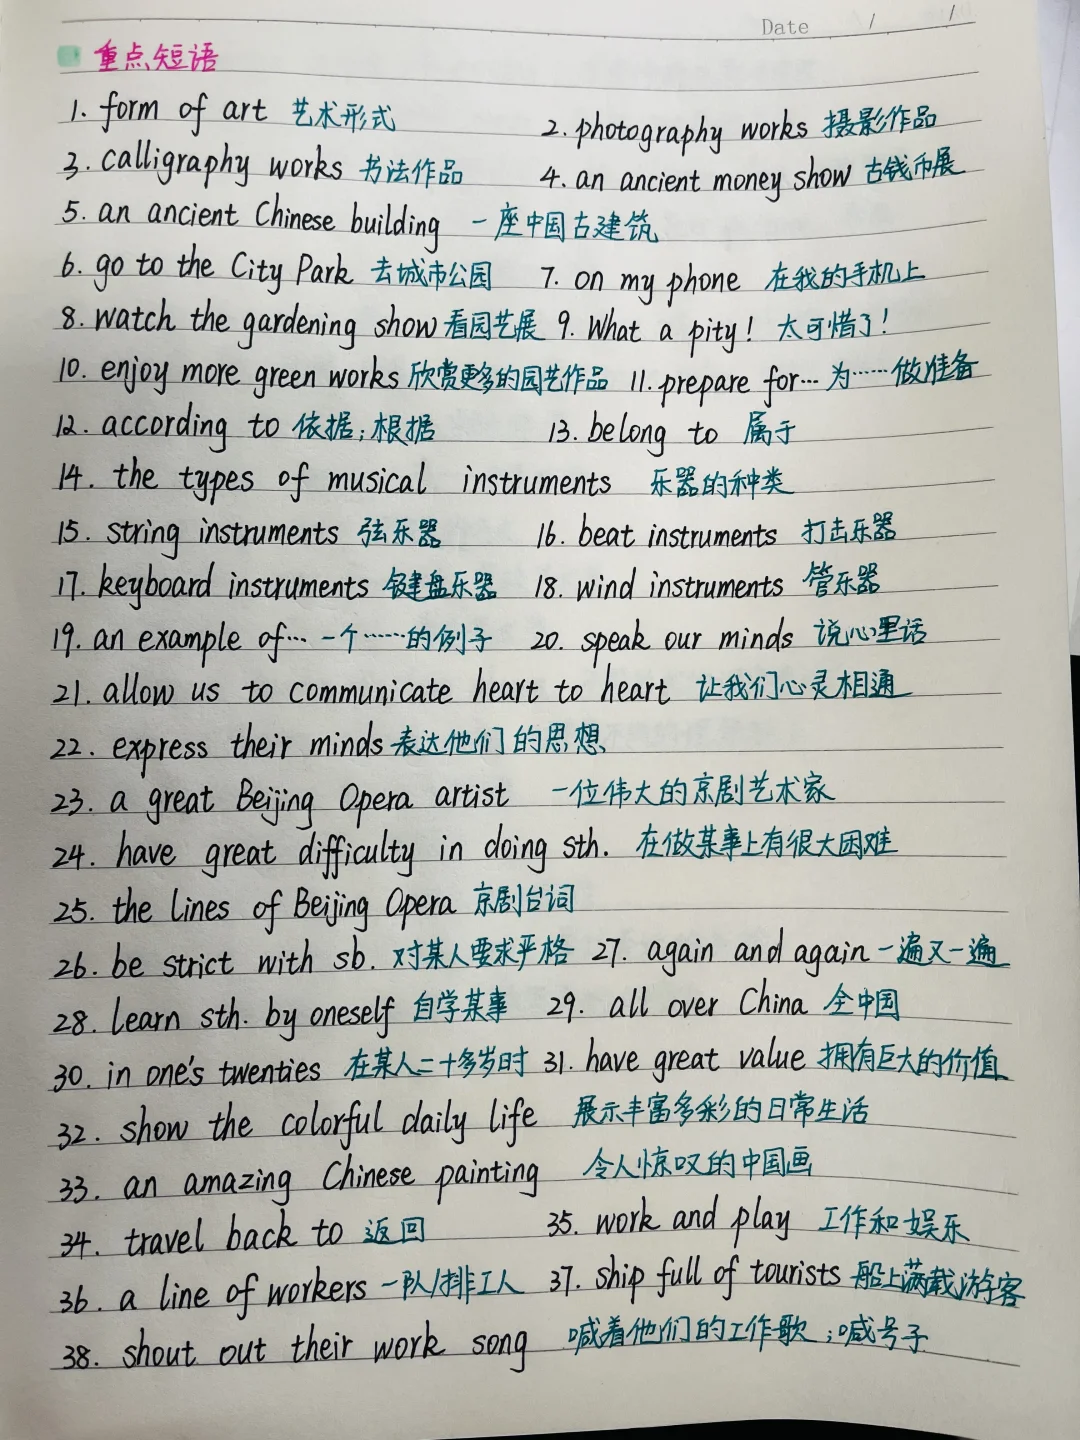 Date / /
重点短语
1. form of art 艺术形式 2. photography works 摄影作品
3. calligraphy works 书法作品 4. an ancient money show 古钱币展
5. an ancient Chinese building 一座中国古建筑
6. go to the City Park 去城市公园 7. on my phone 在我的手机上
8. watch the gardening show 看园艺展 9. What a pity! 太可惜了!
10. enjoy more green works 欣赏更多的园艺作品 11. prepare for… 为……做准备
12. according to 依据;根据 13. belong to 属于
14. the types of musical instruments 乐器的种类
15. string instruments 弦乐器 16. beat instruments 打击乐器
17. keyboard instruments 键盘乐器 18. wind instruments 管乐器
19. an example of… 一个……的例子 20. speak our minds 说心里话
21. allow us to communicate heart to heart 让我们心灵相通
22. express their minds 表达他们的思想
23. a great Beijing Opera artist 一位伟大的京剧艺术家
24. have great difficulty in doing sth. 在做某事上有很大困难
25. the lines of Beijing Opera 京剧台词
26. be strict with sb. 对某人要求严格 27. again and again 一遍又一遍
28. learn sth. by oneself 自学某事 29. all over China 全中国
30. in one's twenties 在某人二十多岁时 31. have great value 拥有巨大的价值
32. show the colorful daily life 展示丰富多彩的日常生活
33. an amazing Chinese painting 令人惊叹的中国画
34. travel back to 返回 35. work and play 工作和娱乐
36. a line of workers 一队/排工人 37. ship full of tourists 船上满载游客
38. shout out their work song 喊着他们的工作歌;喊号子